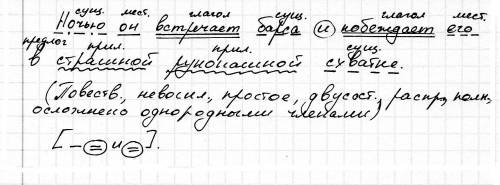 сущ. мест. глагол сущ. глагол мест.
Ночью он встречает барса и побеждает его
предлог прил. прил. сущ.
в страшной рукопашной схватке.
(Повеств, невоскл, простое, двусост, распр, полн,
осложнено однородными членами)
[ – = и = ].